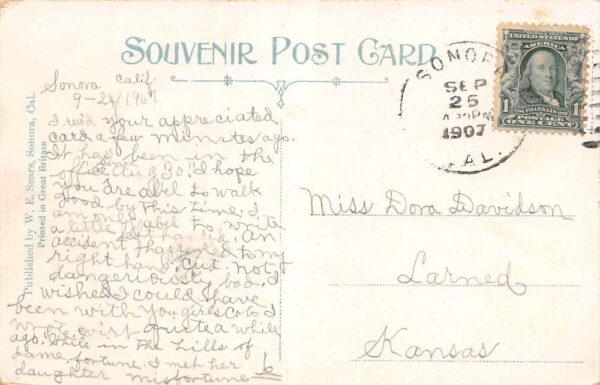 SOUVENIR POST CARD
Sonora Calif.
9-24/1907
I rec'd your appreciated
card a few minutes ago.
It has been in the
office since Aug 30. I hope
you are abel to walk
good by this time. I
am only abel to write
a little left handed. An
accident happened to my
right hand, cut, not
dangeriously bad. I
wished I could have
been with you girls
I quite a while
ago. While in the hills of
fortune. I met her
daughter misfortune
Published by W. E. Sears, Sonora, Cal.
Printed in Great Britain
SONORA
SEP
25
1907
CAL.
UNITED STATES OF
AMERICA
FRANKLIN
1 1
POSTAGE
ONE CENT
Miss Dora Davidson
Larned
Kansas